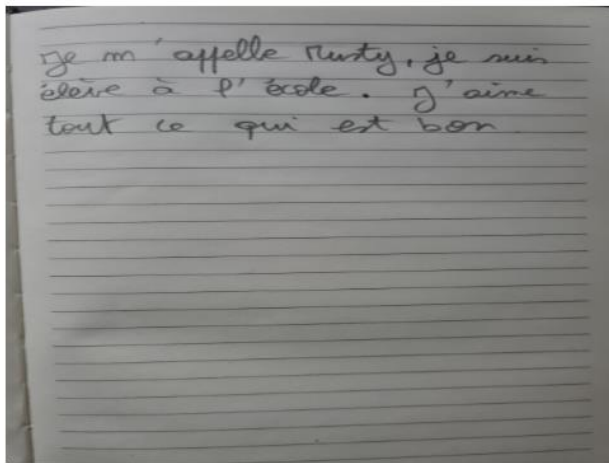 Je m'appelle Rusty, je suis
élève à l'école. J'aime
tout ce qui est bon